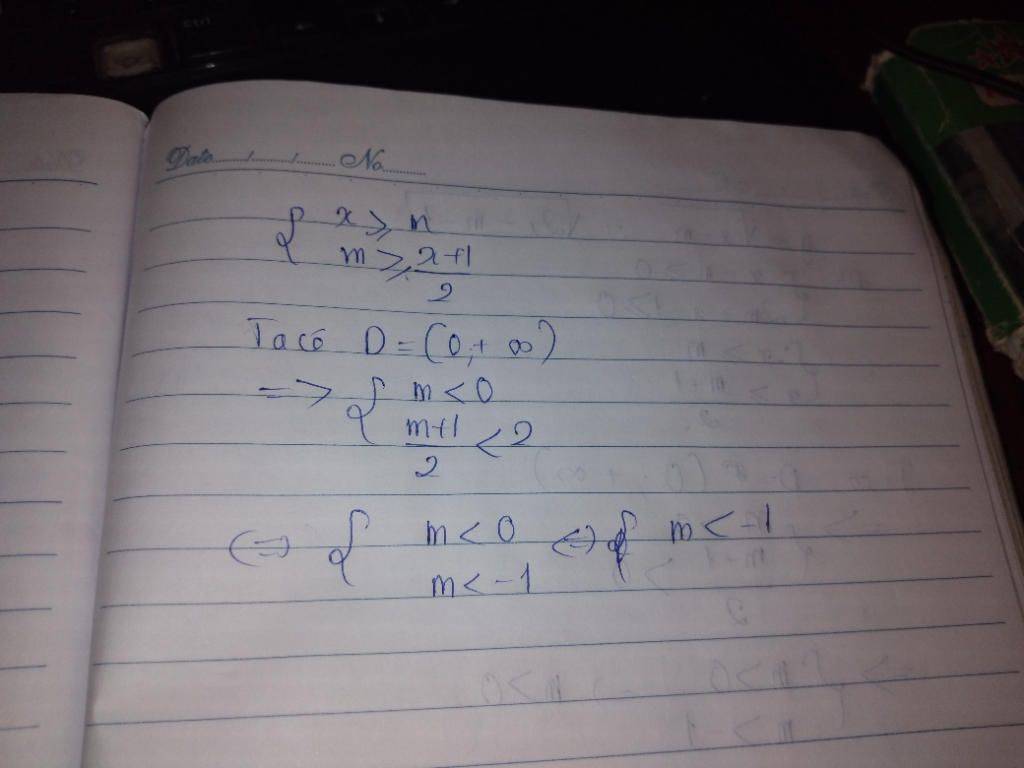 Date....../....../........ No..........
{ x ≥ m
m ≥ x+1
2
Ta có D = (0, + ∞)
=> { m < 0
m+1 < 2
2
<=> { m < 0 <=> { m < -1
m < -1